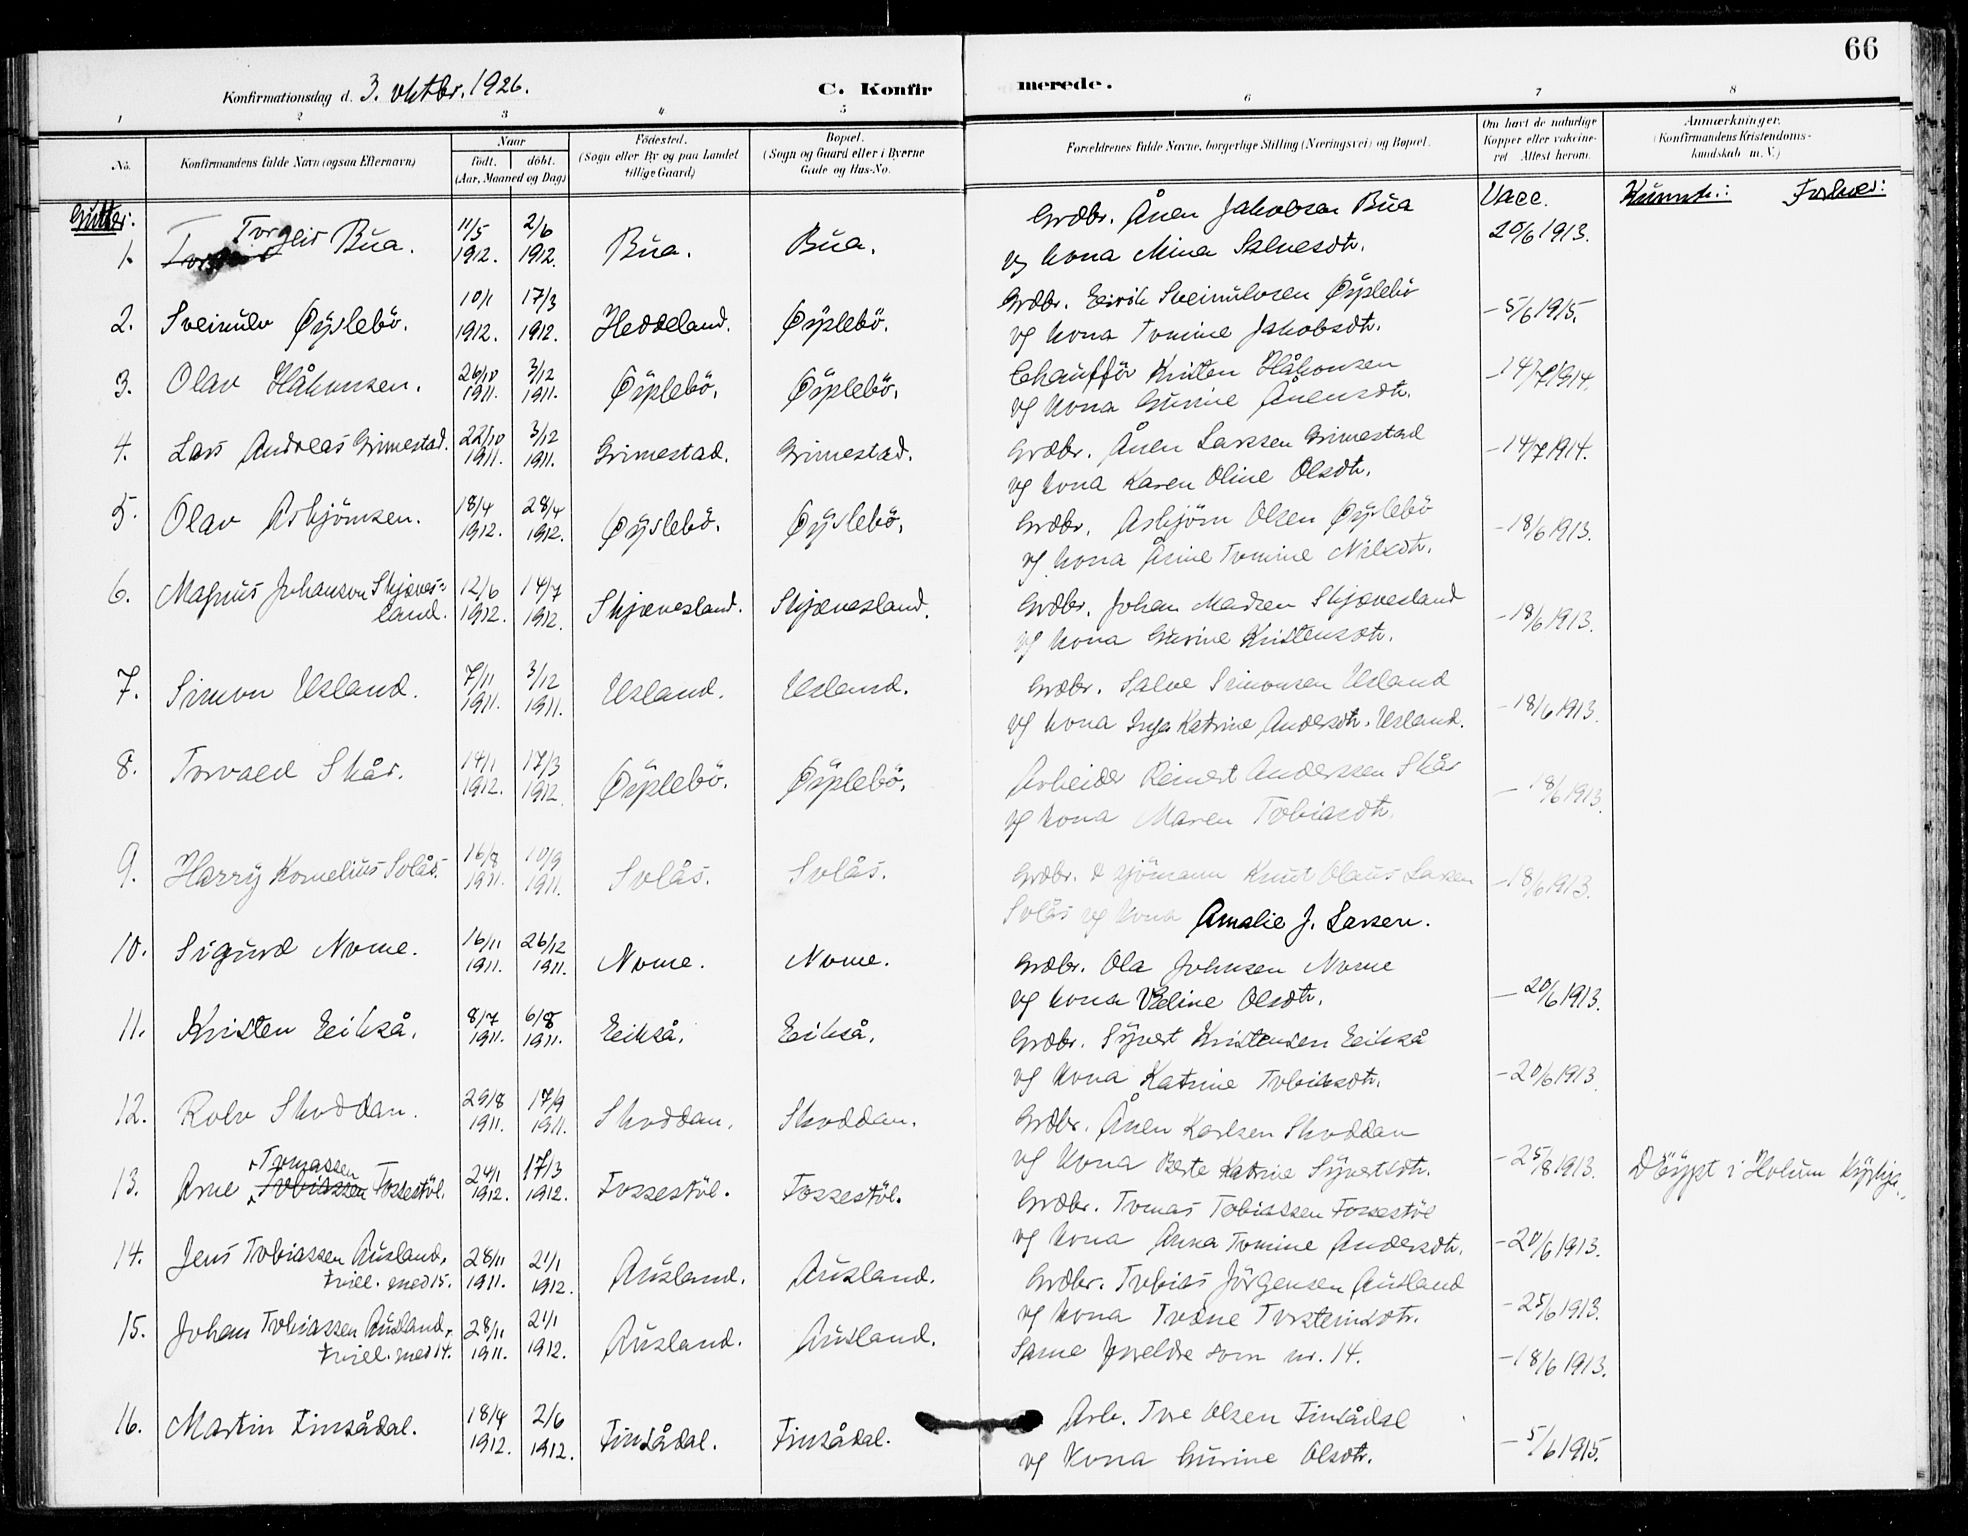 66
Konfirmationsdag d. 3. oktbr. 1926.
C. Konfirmerede.
1 2 3 4 5 6 7 8
No.
Konfirmandens fulde Navn (ogsaa Efternavn)
Naar
födt. döbt.
(Aar, Maaned og Dag)
Födested.
(Sogn eller By og paa Landet
tillige Gaard)
Bopæl.
(Sogn og Gaard eller i Byerne
Gade og Hus-No.
Forældrenes fulde Navne, borgerlige Stilling (Næringsvei) og Bopæl.
Om havt de naturlige
Kopper eller vakcine-
ret. Attest herom.
Anmærkninger.
(Konfirmandens Kristendoms-
kundskab m. V.)
Gutter:
Vacc. Kunnsk.:
1. Torgeir Bua. 11/5 1912. 2/6 1912. Bua. Bua. Grdbr. Ånen Jakobsen Bua 20/6 1913.
og kona Mina Salvesdtr.
2. Sveinulv Øyslebö. 10/1 1912. 17/3 1912. Heddeland. Øyslebö. Grdbr. Eirik Sveinulvsen Øyslebö – 5/6 1915.
og kona Tomine Jakobsdtr.
3. Olav Håkonsen. 26/10 1911. 3/12 1911. Öyslebö. Öyslebö. Chaufför Kristen Håkonsen – 14/7 1914.
og kona Gurine Ånensdtr.
4. Lars Andreas Grimestad. 22/10 1911. 3/12 1911. Grimestad. Grimestad. Grdbr. Ånen Larssen Grimestad – 14/7 1914.
og kona Karen Oline Olsdtr.
5. Olav Asbjörnsen. 18/4 1912. 28/4 1912. Öyslebö. Öyslebö. Grdbr. Asbjörn Olsen Öyslebö – 18/6 1913.
og kona Anne Tomine Nilsdtr.
6. Magnus Johanson Skjæves-
land. 12/6 1912. 14/7 1912. Skjævesland. Skjævesland. Grdbr. Johan Madsen Skjævesland – 18/6 1913.
og kona Gurine Kristensdtr.
7. Simon Usland. 7/11 1911. 3/12 1911. Usland. Usland. Grdbr. Salve Simonsen Usland – 18/6 1913.
og kona Inga Katrine Andersdtr. Usland.
8. Torvald Skår. 14/1 1912. 17/3 1912. Öyslebö. Öyslebö. Arbeider Reinert Anderssen Skår – 18/6 1913.
og kona Maren Tobiasdtr.
9. Harry Kornelius Solås. 16/8 1911. 10/9 1911. Solås. Solås. Grdbr. & sjömann Knut Olaus Larsen – 18/6 1913.
Solås og kona Amalie J. Larsen.
10. Sigurd Nome. 16/11 1911. 26/12 1911. Nome. Nome. Grdbr. Ola Johnsen Nome
og kona Oline Olsdtr. – 20/6 1913.
11. Kristen Eikså. 8/7 1911. 6/8 1911. Eikså. Eikså. Grdbr. Syvert Kristensen Eikså
og kona Katrine Tobiasdtr. – 20/6 1913.
12. Rolv Skoddan. 29/8 1911. 17/9 1911. Skoddan. Skoddan. Grdbr. Ånen Karlsen Skoddan
og kona Berte Katrine Syvertsdtr. – 25/8 1913.
13. Arne Tomassen Tobiassen Fossestöl. 24/1 1912. 17/3 1912. Fossestöl. Fossestöl. Grdbr. Tomas Tobiassen Fossestöl Döypt i Holum kyrkje.
og kona Anna Tomine Andersdtr. – 20/6 1913.
14. Jens Tobiassen Ausland,
tvill. med 15. 28/11 1911. 21/1 1912. Ausland. Ausland. Grdbr. Tobias Jörgensen Ausland
og kona Torine Torsteinsdtr. – 25/6 1913.
15. Johan Tobiassen Ausland,
tvill. med 14. 28/11 1911. 21/1 1912. Ausland. Ausland. Same foreldre som nr. 14. – 18/6 1913.
16. Martin Finsådal. 18/4 1912. 2/6 1912. Finsådal. Finsådal. Arb. Tore Olsen Finsådal
og kona Gurine Olsdtr. – 5/6 1915.